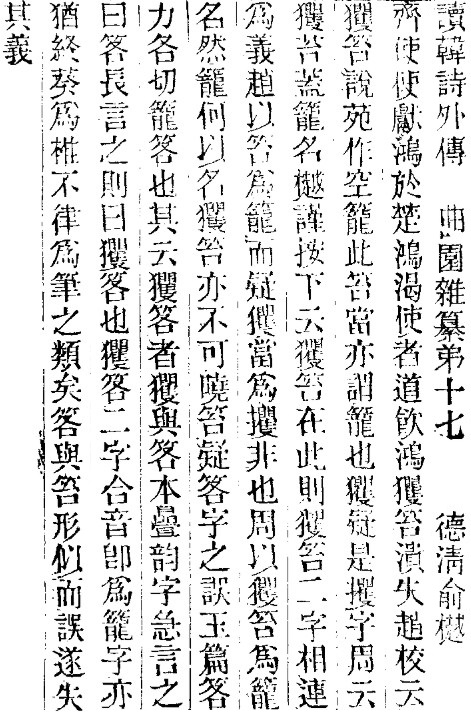 讀韓詩外傳　曲園雜纂弟十七　德清俞樾
齊使使獻鴻於楚鴻渴使者道飮鴻玃笞潰失趙校云
玃笞說苑作空籠此笞當亦謂籠也玃疑是攫字周云
玃笞蓋籠名樾謹按下云玃笞在此則玃笞二字相連
爲義趙以笞爲籠而疑玃當爲攫非也周以玃笞爲籠
名然籠何以名玃笞亦不可曉笞疑笿字之誤玉篇笿
力各切籠笿也其云玃笿者玃與笿本疊韵字急言之
曰笿長言之則曰玃笿也玃笿二字合音卽爲籠字亦
猶終葵爲椎不律爲筆之類矣笿與笞形似而誤遂失
其義